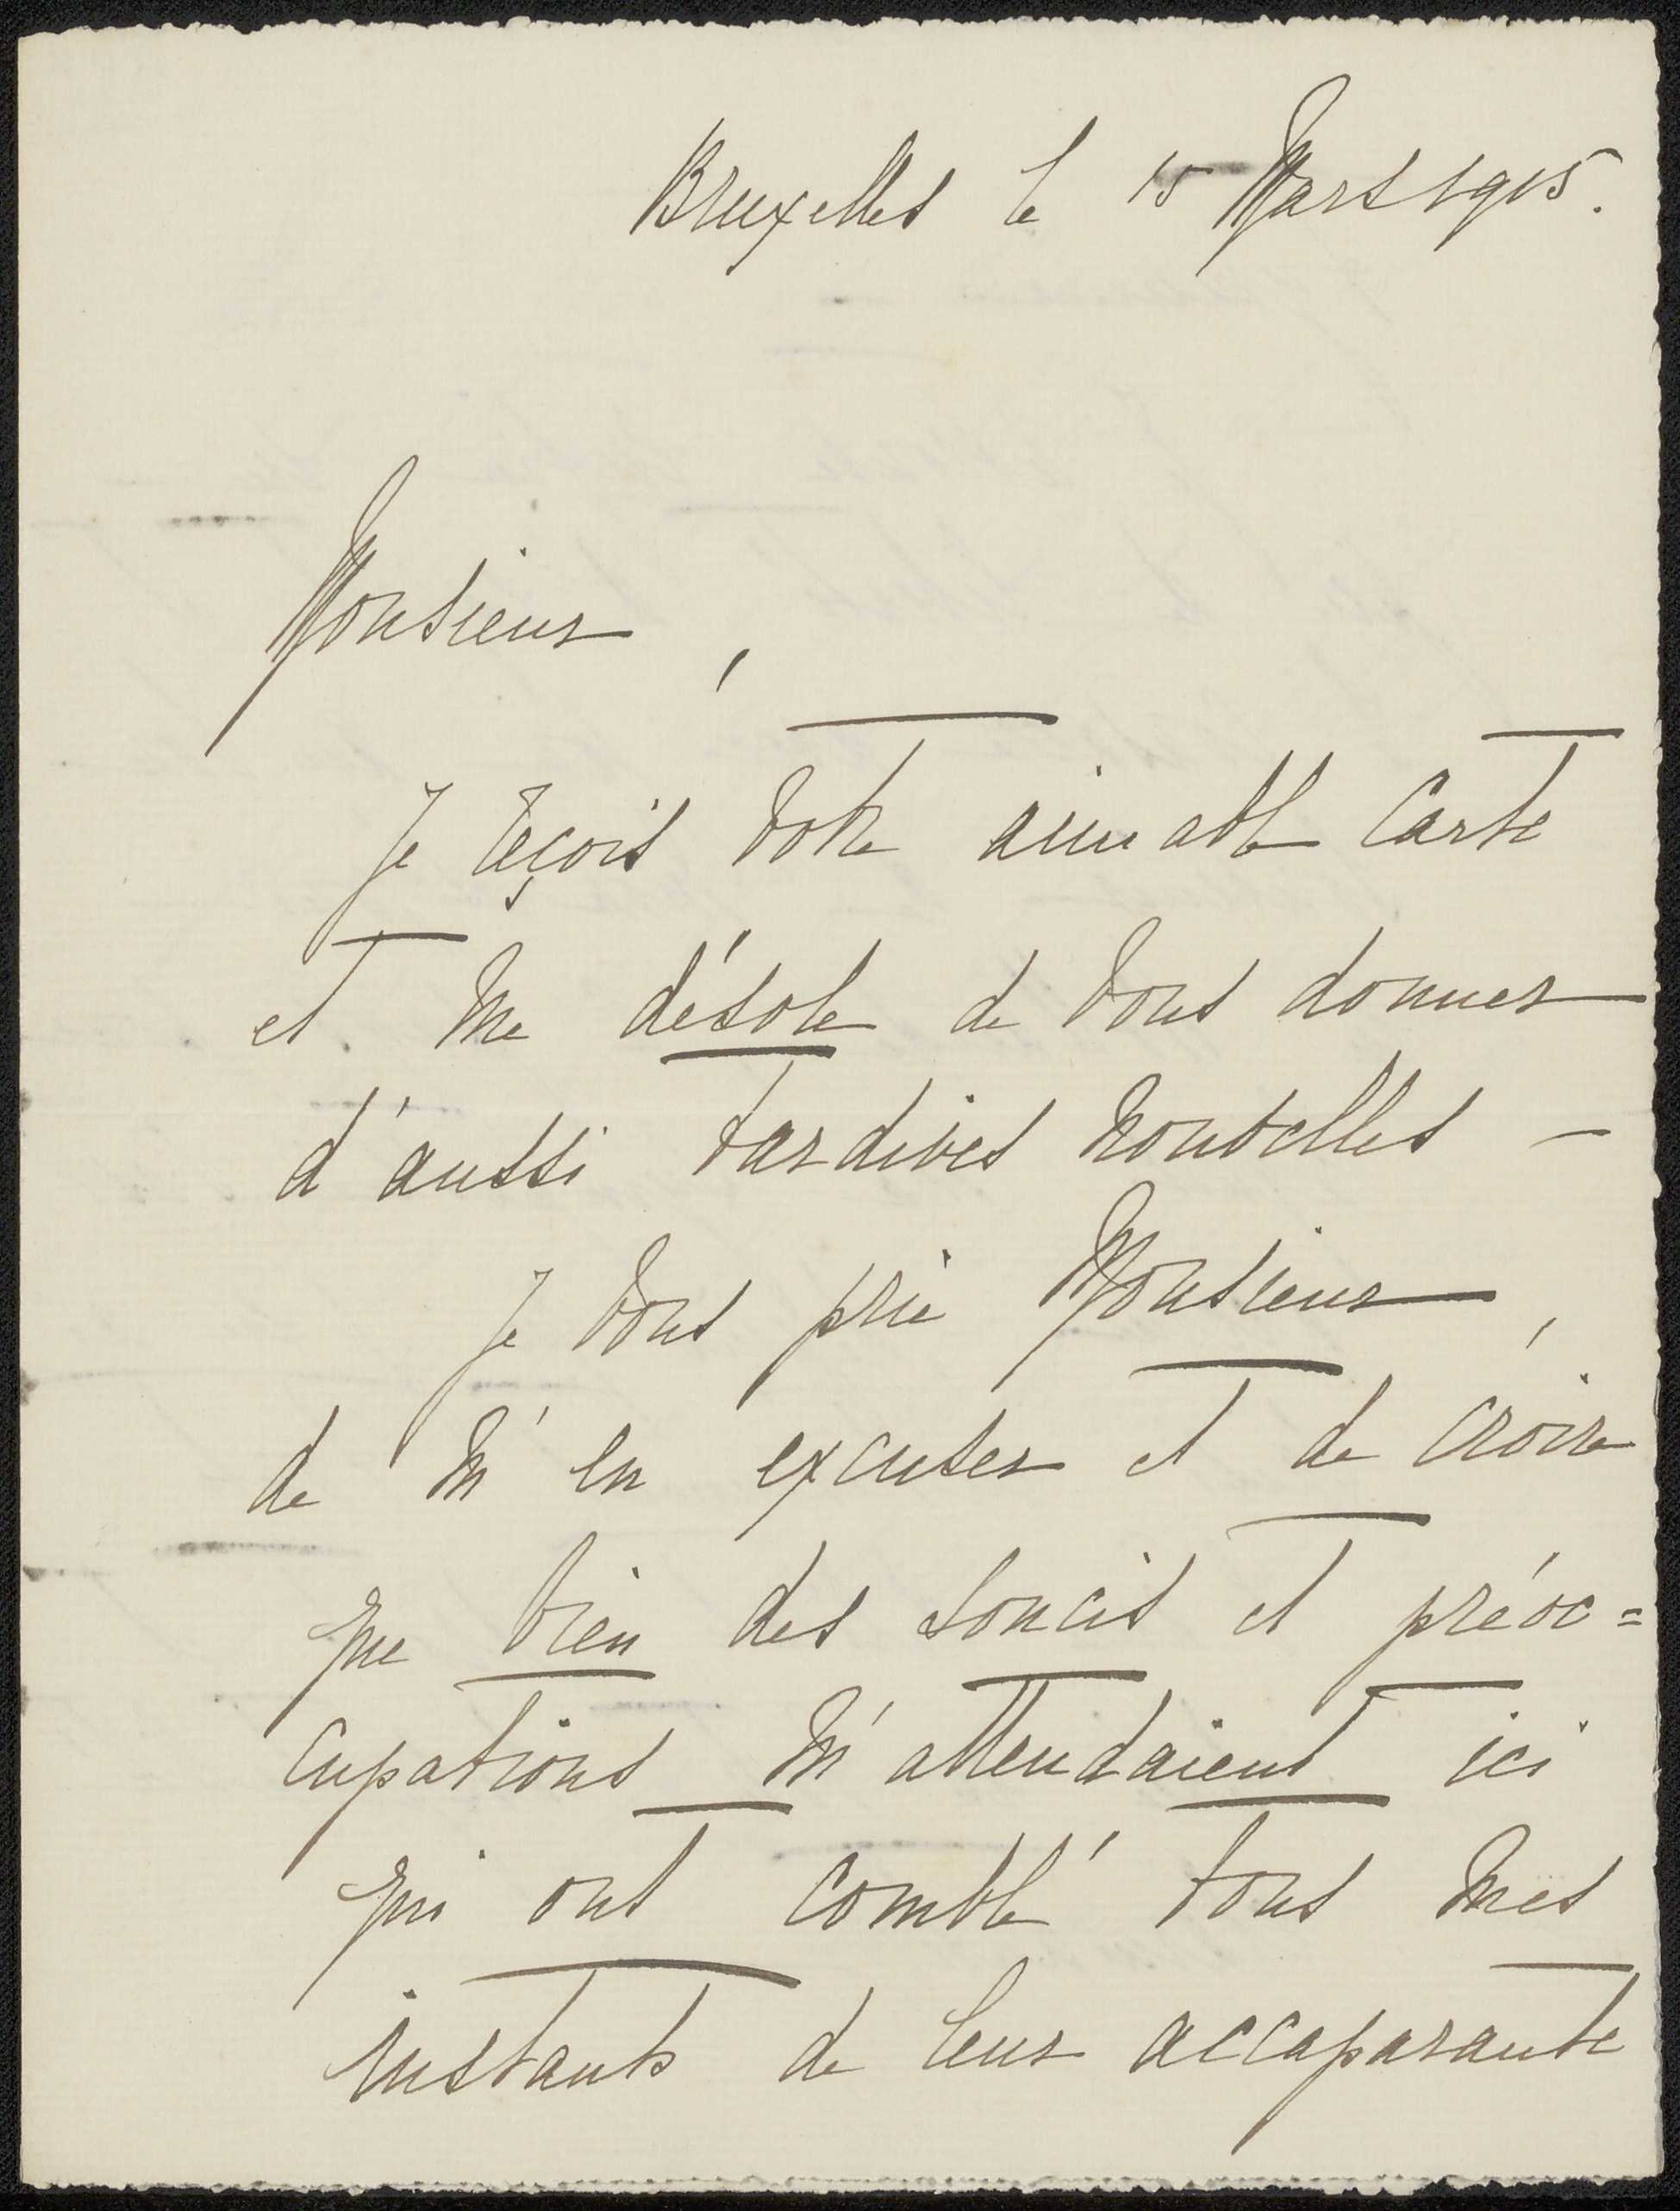 Bruxelles le 15 Mars 1915.
Monsieur,
Je reçois votre aimable carte
et me désole de vous donner
d'aussi tardives nouvelles –
Je vous prie Monsieur,
de m'en excuser et de croire
que bien des soucis et préoc=
cupations m'attendaient ici
qui ont comblé tous mes
instants de leur accaparante